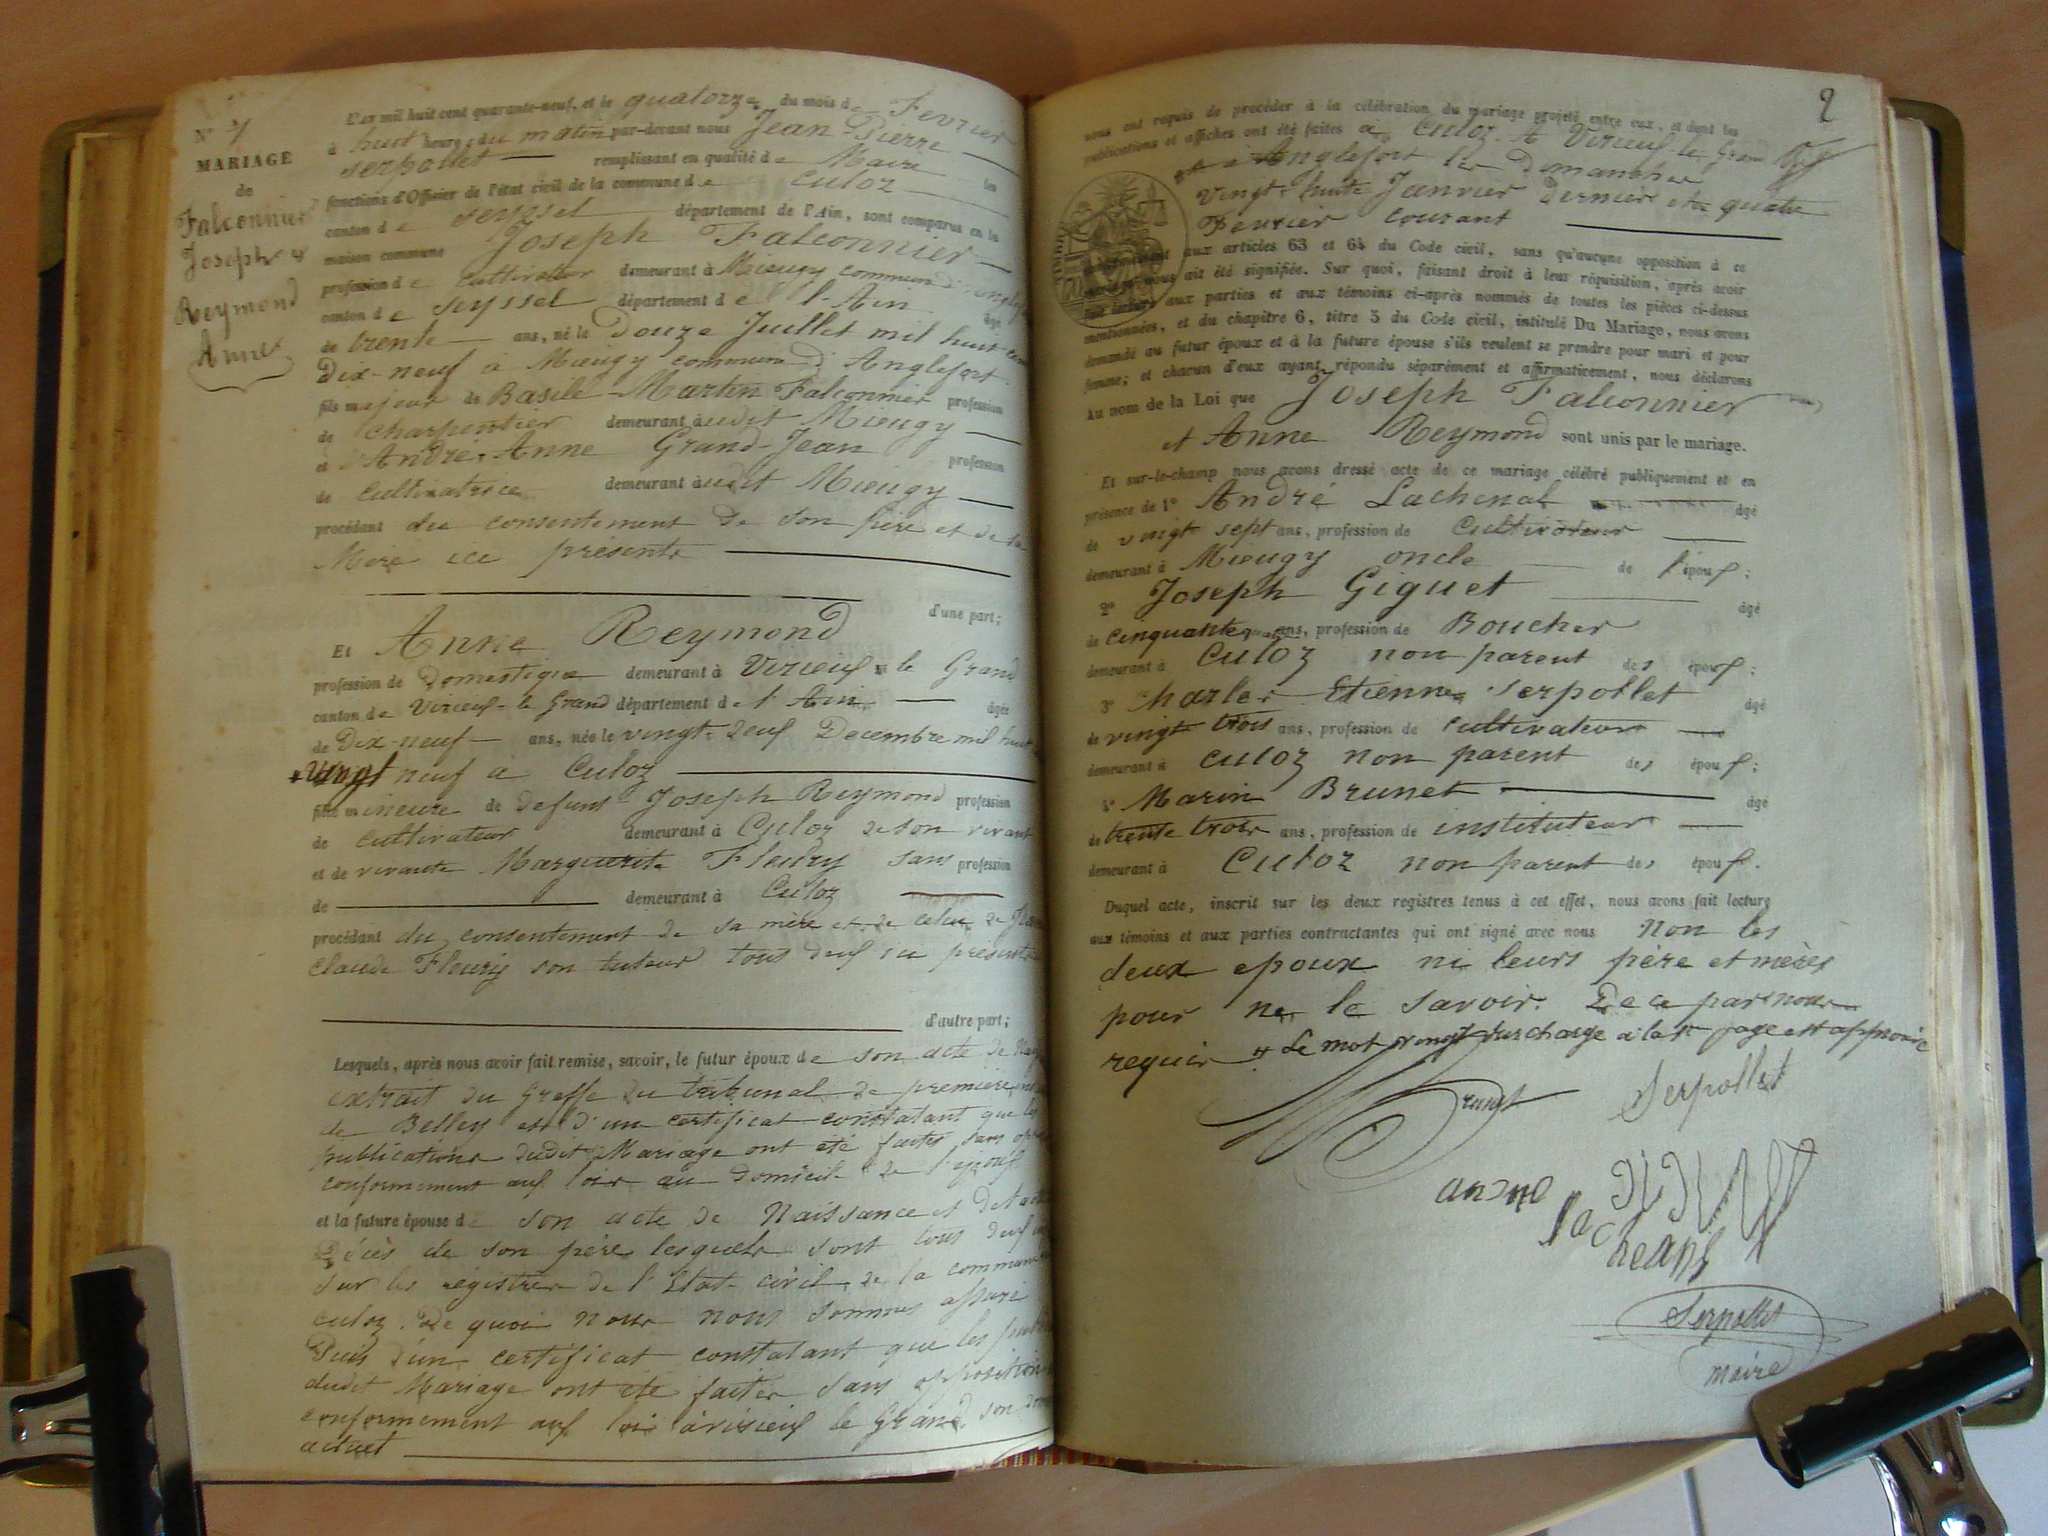 N° 4
MARIAGE
de
Falconnier
Joseph &
Reymond
Anne
L'an mil huit cent quarante-neuf, et le quatorze du mois de Fevrier
à huit heures du matin par-devant nous Jean Pierre
serpollet remplissant en qualité de Maire les
fonctions d'Officier de l'état civil de la commune de Culoz
canton de seyssel département de l'Ain, sont comparus en la
maison commune Joseph Falconnier
profession de cultivateur demeurant à Mieugy commune d'
canton de seyssel département de l'Ain âgé
de trente ans, né le Douze Juillet mil huit cent
Dix-neuf à Mieugy commune d'Anglefort
fils majeur de Basile-Martin Falconnier profession
de charpentier demeurant audit Mieugy
et d'André-Anne Grand-Jean profession
de cultivatrice demeurant audit Mieugy
procédant du consentement de son père et de sa
Mère ici présents
d'une part;
Et Anne Reymond
profession de Domestique demeurant à Virieux le Grand
canton de Virieux-le Grand département de l'Ain âgée
de Dix-neuf ans, née le vingt-deux Decembre mil huit
vingt neuf à Culoz
fille mineure de defunt Joseph Reymond profession
de cultivateur demeurant à Culoz de son vivant
et de vivante Marguerite Fleury sans profession
de demeurant à Culoz
procédant du consentement de sa mère et de celui de
Claude Fleury son tuteur tous deux ici présents
d'autre part;
Lesquels, après nous avoir fait remise, savoir, le futur époux de son acte de
extrait du Greffe du tribunal de première
de Belley et d'un certificat constatant que les
publications dudit Mariage ont été faites sans
conformement aux lois au domicile de l'époux
et la future épouse de son acte de Naissance et de
Décès de son père lesquels sont tous deux
sur les registres de l'Etat-civil de la commune
culoz. De quoi nous nous sommes assuré
Puis d'un certificat constatant que les
dudit Mariage ont été faites sans opposition
conformement aux lois à virieux le Grand son
actuel
2
nous ont requis de procéder à la célébration du mariage projeté entre eux, et dont les
publications et affiches ont été faites à Culoz. A Virieux le Grand
et à Anglefort les Dimanches
vingt-huit Janvier Dernier et quatre
Fevrier courant
conformément aux articles 63 et 64 du Code civil, sans qu'aucune opposition à ce
mariage nous ait été signifiée. Sur quoi, faisant droit à leur réquisition, après avoir
fait lecture aux parties et aux témoins ci-après nommés de toutes les pièces ci-dessus
mentionnées, et du chapitre 6, titre 5 du Code civil, intitulé Du Mariage, nous avons
demandé au futur époux et à la future épouse s'ils veulent se prendre pour mari et pour
femme; et chacun d'eux ayant répondu séparément et affirmativement, nous déclarons
Au nom de la Loi que Joseph Falconnier
et Anne Reymond sont unis par le mariage.
Et sur-le-champ nous avons dressé acte de ce mariage célébré publiquement et en
présence de 1° André Lachenal âgé
de vingt sept ans, profession de Cultivateur
demeurant à Mieugy oncle de l'époux;
2° Joseph Giguet âgé
de cinquante quatre ans, profession de Boucher
demeurant à Culoz non parent des époux;
3° Charles Etienne serpollet âgé
de vingt trois ans, profession de cultivateur
demeurant à Culoz non parent des époux;
4° Marin Brunet âgé
de trente trois ans, profession de instituteur
demeurant à Culoz non parent des époux.
Duquel acte, inscrit sur les deux registres tenus à cet effet, nous avons fait lecture
aux témoins et aux parties contractantes qui ont signé avec nous Non les
deux epoux ni leurs père et mères
pour ne le savoir. De ce par nous
requis + Le mot vingt surchargé à la 1re page est approuvé
Brunet Serpollet
andré
lachenal
Serpollet
maire